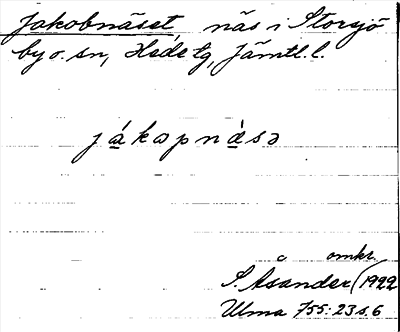 Jakobnäset, näs i Storsjö
by o. sn, Hede tg, Jämtl. l.
jákapnásə
omkr.
S. Åsander (1922
Ulma 755:23 s. 6